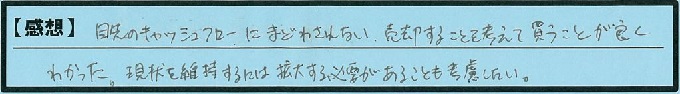 【感想】 目先のキャッシュフローにまどわされない、売却することも考えて買うことが良く
わかった。現状を維持するには拡大する必要があることも考慮したい。